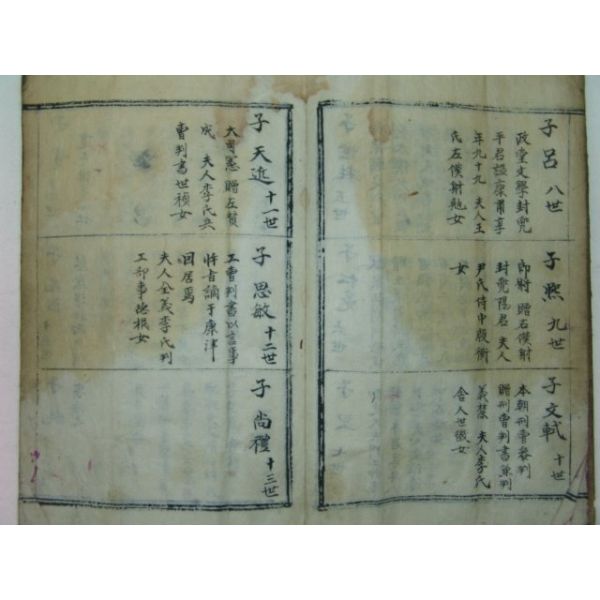 子呂 八世
政堂文學封
平君諡康肅享
年九十九 夫人王
氏左僕射 女
子熙 九世
郎將 贈右僕射
封 陽君 夫人
尹氏侍中 衡
女
子文軾 十世
本朝刑曹參判
贈刑曹判書兼判
義禁 夫人李氏
舍人世 女
子天近 十一世
大司憲 贈左贊
成 夫人李氏兵
曹判書世禎女
子思敏 十二世
工曹判書以言事
忤旨謫于康津
回居焉
夫人全義李氏判
工部事 根女
子尚禮 十三世